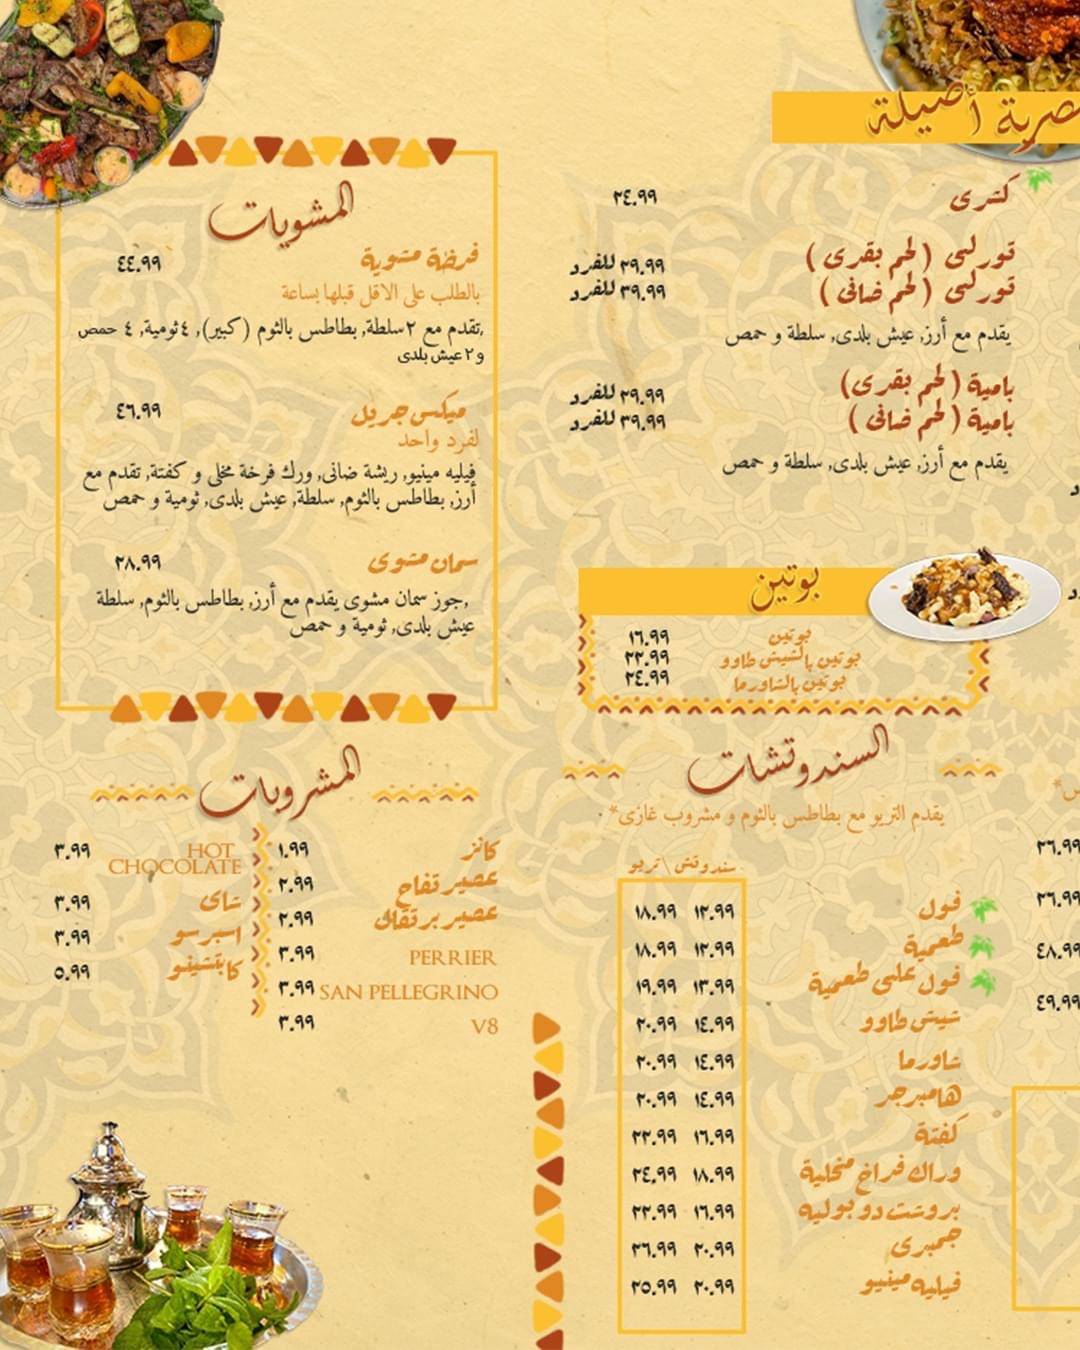 أصيلة
كشرى ٢٤.٩٩
تورلى (لحم بقرى) ٢٩.٩٩ للفرد
تورلى (لحم ضانى) ٣٩.٩٩ للفرد
يقدم مع أرز, عيش بلدى, سلطة و حمص
بامية (لحم بقرى) ٢٩.٩٩ للفرد
بامية (لحم ضانى) ٣٩.٩٩ للفرد
يقدم مع أرز, عيش بلدى, سلطة و حمص
بوتين
بوتين ١٦.٩٩
بوتين بالشيش طاوو ٢٢.٩٩
بوتين بالشاورما ٢٤.٩٩
السندوتشات
يقدم التريو مع بطاطس بالثوم و مشروب غازى*
سندوتش \ تريو
فول ١٢.٩٩ ١٨.٩٩
طعمية ١٢.٩٩ ١٨.٩٩
فول على طعمية ١٣.٩٩ ١٩.٩٩
شيش طاوو ١٤.٩٩ ٢٠.٩٩
شاورما ١٤.٩٩ ٢٠.٩٩
هامبرجر ١٤.٩٩ ٢٠.٩٩
كفتة ١٦.٩٩ ٢٢.٩٩
وراك فراخ مخلية ١٨.٩٩ ٢٤.٩٩
بروشت دو بوليه ١٦.٩٩ ٢٢.٩٩
جمبرى ٢٠.٩٩ ٢٦.٩٩
فيليه مينيو ٢٠.٩٩ ٢٥.٩٩
٢٦.٩٩
٢٦.٩٩
٤٨.٩٩
٤٩.٩٩
المشويات
فرخة مشوية ٤٤.٩٩
بالطلب على الاقل قبلها بساعة
تقدم مع ٢سلطة, بطاطس بالثوم (كبير), ٤ثومية, ٤ حمص,
و ٢ عيش بلدى
ميكس جريل ٤٦.٩٩
لفرد واحد
فيليه مينيو, ريشة ضانى, ورك فرخة مخلى و كفتة, تقدم مع
أرز, بطاطس بالثوم, سلطة, عيش بلدى, ثومية و حمص
سمان مشوى ٢٨.٩٩
جوز سمان مشوى يقدم مع أرز, بطاطس بالثوم, سلطة,
عيش بلدى, ثومية و حمص
المشروبات
كانز ١.٩٩
عصير تفاح ٢.٩٩
عصير برتقال ٢.٩٩
PERRIER ٣.٩٩
SAN PELLEGRINO ٣.٩٩
V8 ٣.٩٩
HOT
CHOCOLATE ٣.٩٩
شاى ٣.٩٩
اسبرسو ٣.٩٩
كابتشينو ٥.٩٩